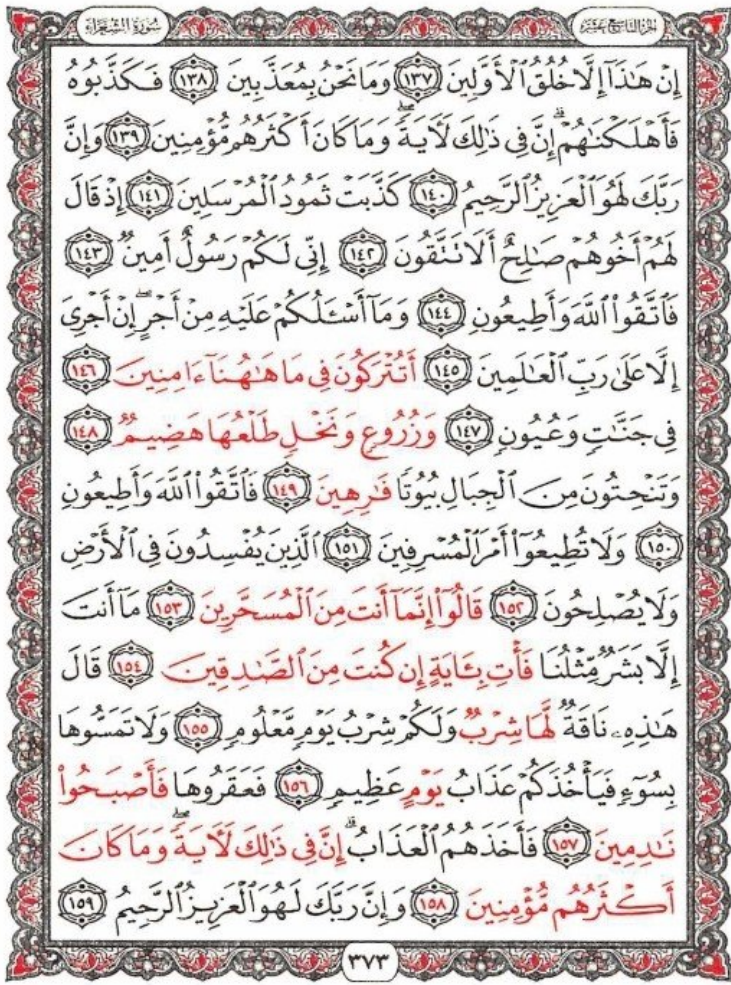 الجزء التاسع عشر
سورة الشعراء
إِنْ هَٰذَآ إِلَّا خُلُقُ ٱلْأَوَّلِينَ ١٣٧ وَمَا نَحْنُ بِمُعَذَّبِينَ ١٣٨ فَكَذَّبُوهُ
فَأَهْلَكْنَٰهُمْ ۗ إِنَّ فِى ذَٰلِكَ لَأَيَةً ۖ وَمَا كَانَ أَكْثَرُهُم مُّؤْمِنِينَ ١٣٩ وَإِنَّ
رَبَّكَ لَهُوَ ٱلْعَزِيزُ ٱلرَّحِيمُ ١٤٠ كَذَّبَتْ ثَمُودُ ٱلْمُرْسَلِينَ ١٤١ إِذْ قَالَ
لَهُمْ أَخُوهُمْ صَٰلِحٌ أَلَا تَتَّقُونَ ١٤٢ إِنِّى لَكُمْ رَسُولٌ أَمِينٌ ١٤٣
فَٱتَّقُوا۟ ٱللَّهَ وَأَطِيعُونِ ١٤٤ وَمَآ أَسْـَٔلُكُمْ عَلَيْهِ مِنْ أَجْرٍ ۖ إِنْ أَجْرِىَ
إِلَّا عَلَىٰ رَبِّ ٱلْعَٰلَمِينَ ١٤٥ أَتُتْرَكُونَ فِى مَا هَٰهُنَآ ءَامِنِينَ ١٤٦
فِى جَنَّٰتٍ وَعُيُونٍ ١٤٧ وَزُرُوعٍ وَنَخْلٍ طَلْعُهَا هَضِيمٌ ١٤٨
وَتَنْحِتُونَ مِنَ ٱلْجِبَالِ بُيُوتًا فَٰرِهِينَ ١٤٩ فَٱتَّقُوا۟ ٱللَّهَ وَأَطِيعُونِ
١٥٠ وَلَا تُطِيعُوٓا۟ أَمْرَ ٱلْمُسْرِفِينَ ١٥١ ٱلَّذِينَ يُفْسِدُونَ فِى ٱلْأَرْضِ
وَلَا يُصْلِحُونَ ١٥٢ قَالُوٓا۟ إِنَّمَآ أَنتَ مِنَ ٱلْمُسَحَّرِينَ ١٥٣ مَآ أَنتَ
إِلَّا بَشَرٌ مِّثْلُنَا فَأْتِ بِـَٔايَةٍ إِن كُنتَ مِنَ ٱلصَّٰدِقِينَ ١٥٤ قَالَ
هَٰذِهِۦ نَاقَةٌ لَّهَا شِرْبٌ وَلَكُمْ شِرْبُ يَوْمٍ مَّعْلُومٍ ١٥٥ وَلَا تَمَسُّوهَا
بِسُوٓءٍ فَيَأْخُذَكُمْ عَذَابُ يَوْمٍ عَظِيمٍ ١٥٦ فَعَقَرُوهَا فَأَصْبَحُوا۟
نَٰدِمِينَ ١٥٧ فَأَخَذَهُمُ ٱلْعَذَابُ ۗ إِنَّ فِى ذَٰلِكَ لَأَيَةً ۖ وَمَا كَانَ
أَكْثَرُهُم مُّؤْمِنِينَ ١٥٨ وَإِنَّ رَبَّكَ لَهُوَ ٱلْعَزِيزُ ٱلرَّحِيمُ ١٥٩
٣٧٣